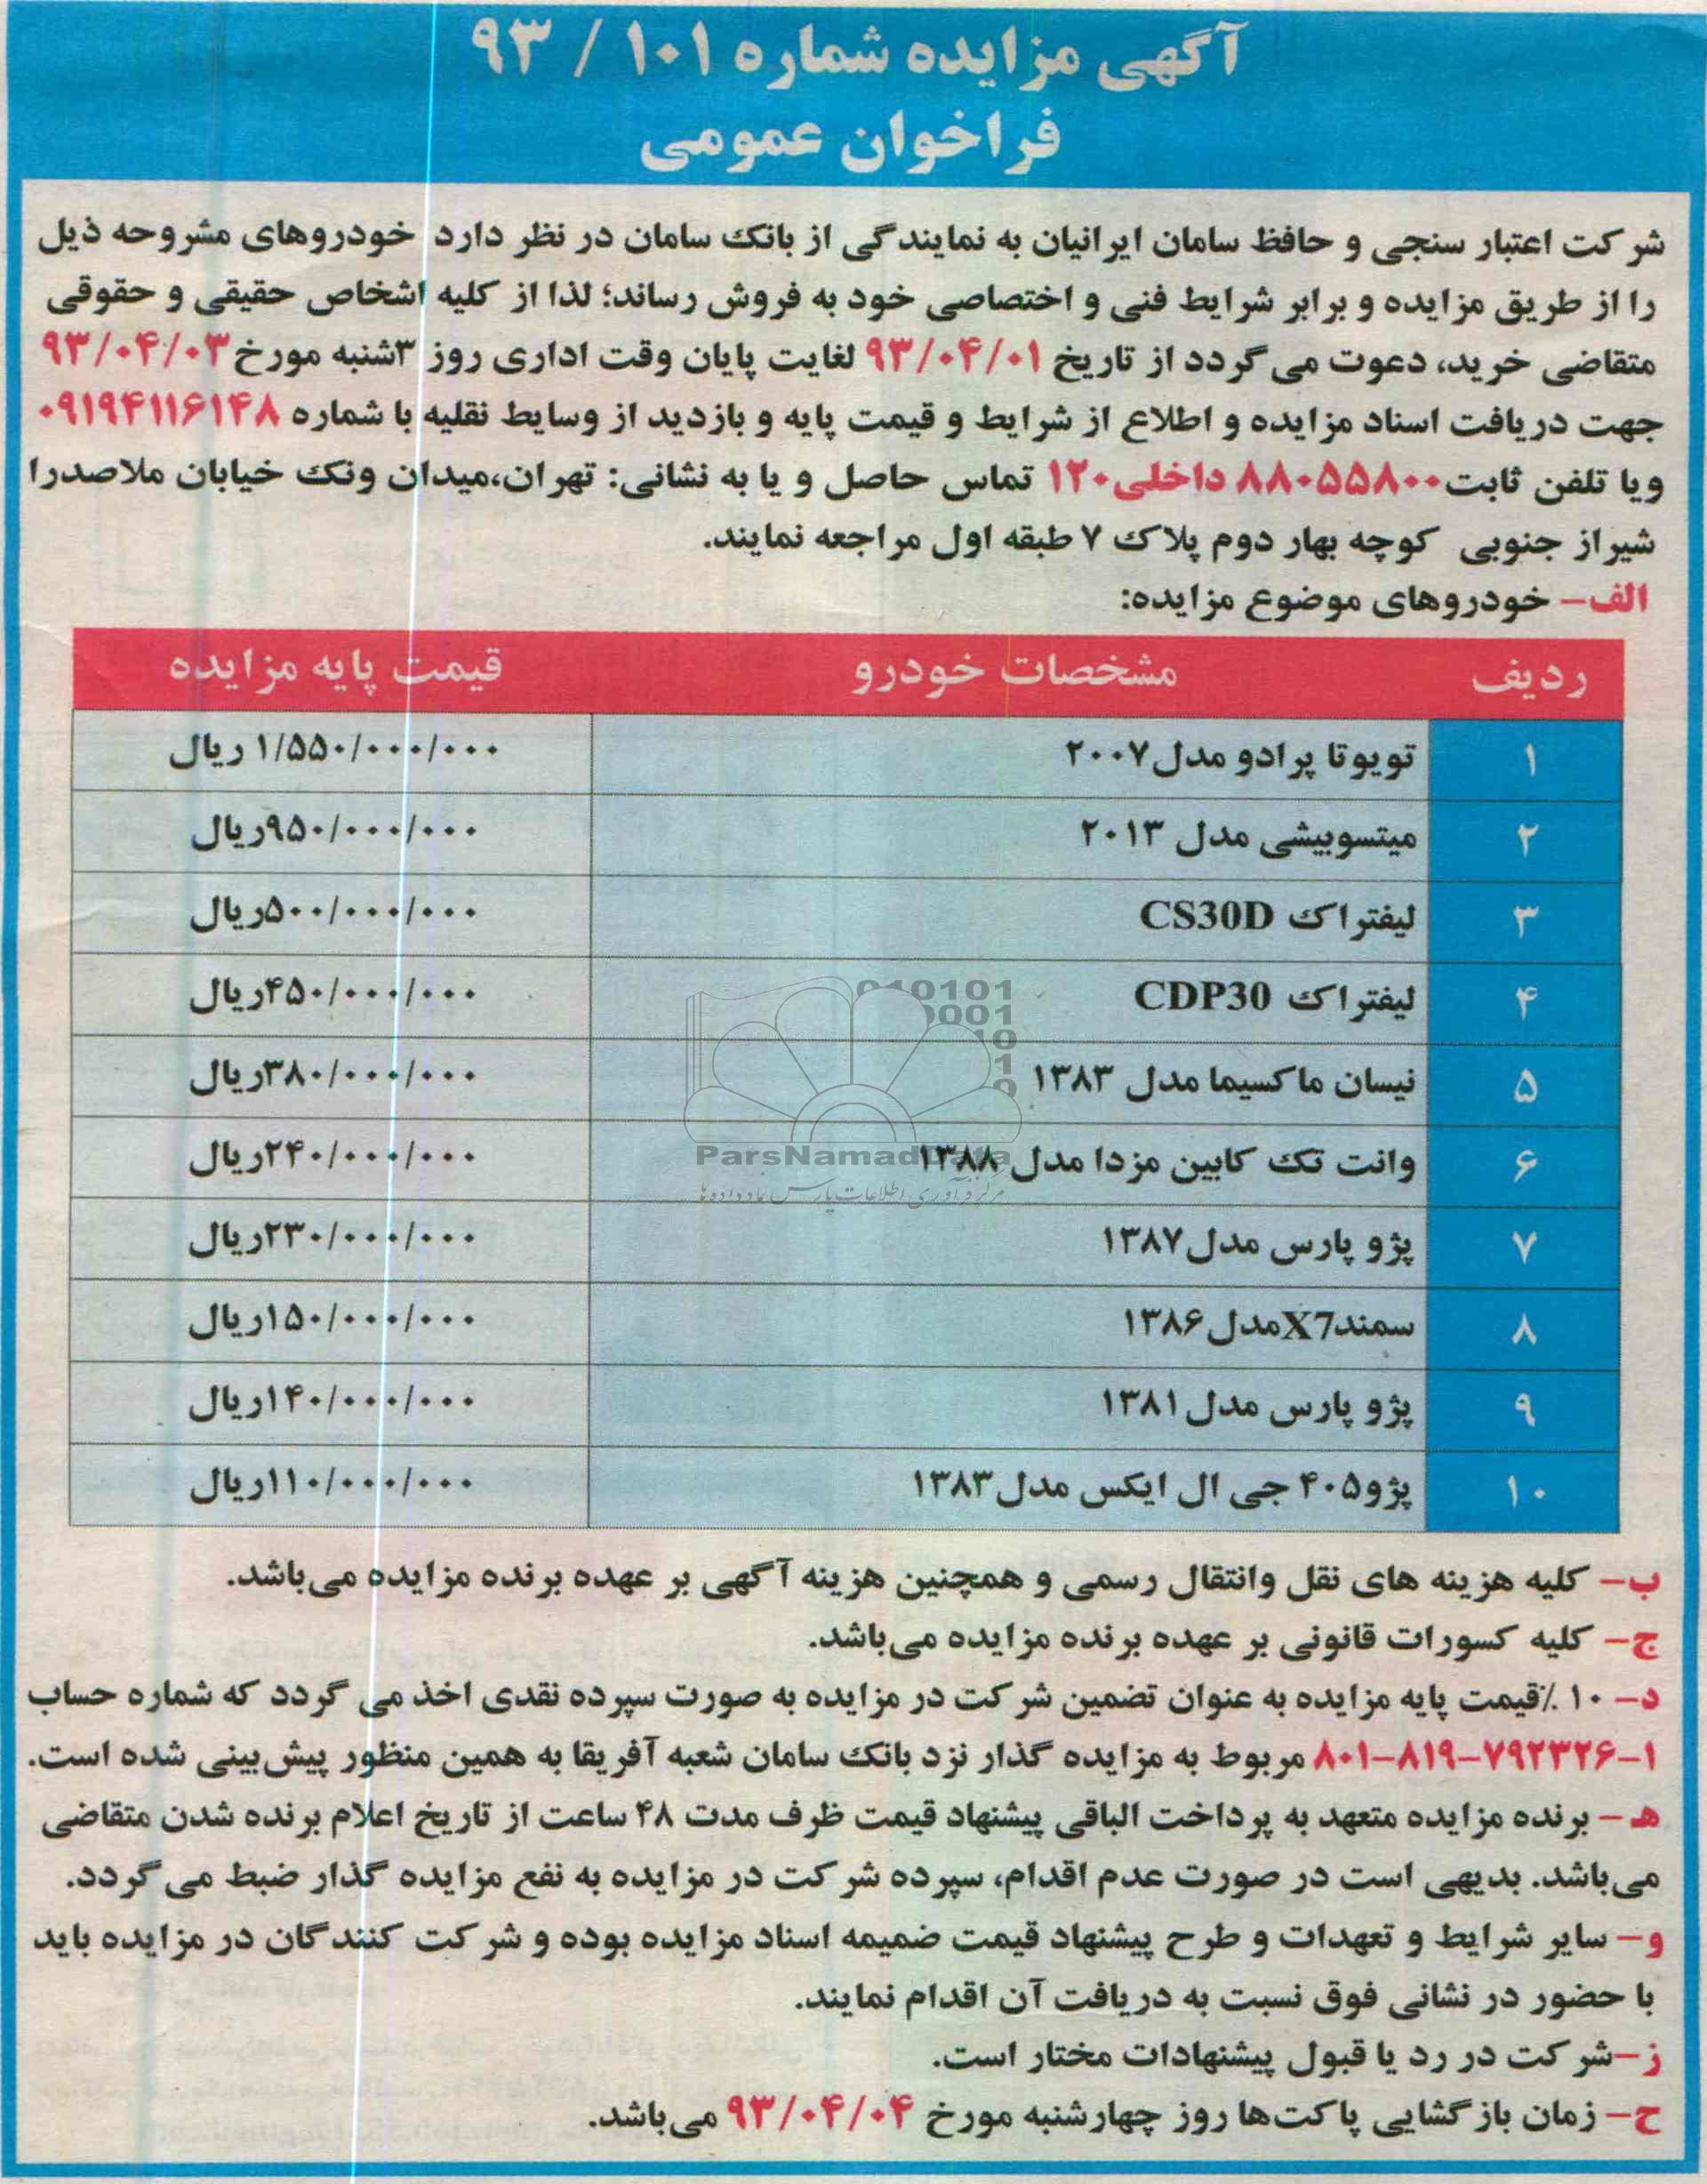 آگهی مزایده شماره ۱۰۱ / ۹۳
فراخوان عمومی
شرکت اعتبار سنجی و حافظ سامان ایرانیان به نمایندگی از بانک سامان در نظر دارد خودروهای مشروحه ذیل
را از طریق مزایده و برابر شرایط فنی و اختصاصی خود به فروش رساند؛ لذا از کلیه اشخاص حقیقی و حقوقی
متقاضی خرید، دعوت می گردد از تاریخ ۹۳/۰۴/۰۱ لغایت پایان وقت اداری روز ۳شنبه مورخ ۹۳/۰۴/۰۳
جهت دریافت اسناد مزایده و اطلاع از شرایط و قیمت پایه و بازدید از وسایط نقلیه با شماره ۰۹۱۹۴۱۱۶۱۴۸
ویا تلفن ثابت ۸۸۰۵۵۸۰۰ داخلی ۱۲۰ تماس حاصل و یا به نشانی: تهران،میدان ونک خیابان ملاصدرا
شیراز جنوبی کوچه بهار دوم پلاک ۷ طبقه اول مراجعه نمایند.
الف- خودروهای موضوع مزایده:
ردیف مشخصات خودرو قیمت پایه مزایده
۱ تویوتا پرادو مدل۲۰۰۷ ۱/۵۵۰/۰۰۰/۰۰۰ ریال
۲ میتسوبیشی مدل ۲۰۱۳ ۹۵۰/۰۰۰/۰۰۰ریال
۳ لیفتراک CS30D ۵۰۰/۰۰۰/۰۰۰ریال
۴ لیفتراک CDP30 ۴۵۰/۰۰۰/۰۰۰ریال
۵ نیسان ماکسیما مدل ۱۳۸۳ ۳۸۰/۰۰۰/۰۰۰ریال
۶ وانت تک کابین مزدا مدل ۱۳۸۸ ۲۴۰/۰۰۰/۰۰۰ریال
۷ پژو پارس مدل۱۳۸۷ ۲۳۰/۰۰۰/۰۰۰ریال
۸ سمندX7مدل۱۳۸۶ ۱۵۰/۰۰۰/۰۰۰ریال
۹ پژو پارس مدل۱۳۸۱ ۱۴۰/۰۰۰/۰۰۰ریال
۱۰ پژو۴۰۵ جی ال ایکس مدل۱۳۸۳ ۱۱۰/۰۰۰/۰۰۰ریال
ParsNamadData
مرکز فرآوری اطلاعات پارس نماد داده ها
ب- کلیه هزینه های نقل وانتقال رسمی و همچنین هزینه آگهی بر عهده برنده مزایده می‌باشد.
ج- کلیه کسورات قانونی بر عهده برنده مزایده می‌باشد.
د- ۱۰ ٪قیمت پایه مزایده به عنوان تضمین شرکت در مزایده به صورت سپرده نقدی اخذ می گردد که شماره حساب
۱-۷۹۲۳۲۶-۸۱۹-۸۰۱ مربوط به مزایده گذار نزد بانک سامان شعبه آفریقا به همین منظور پیش‌بینی شده است.
هـ - برنده مزایده متعهد به پرداخت الباقی پیشنهاد قیمت ظرف مدت ۴۸ ساعت از تاریخ اعلام برنده شدن متقاضی
می‌باشد. بدیهی است در صورت عدم اقدام، سپرده شرکت در مزایده به نفع مزایده گذار ضبط می گردد.
و- سایر شرایط و تعهدات و طرح پیشنهاد قیمت ضمیمه اسناد مزایده بوده و شرکت کنندگان در مزایده باید
با حضور در نشانی فوق نسبت به دریافت آن اقدام نمایند.
ز-شرکت در رد یا قبول پیشنهادات مختار است.
ح- زمان بازگشایی پاکت‌ها روز چهارشنبه مورخ ۹۳/۰۴/۰۴ می‌باشد.